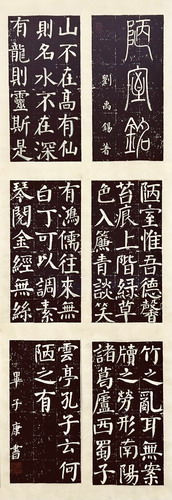 陋室銘
劉禹錫著
山不在高有仙
則名水不在深
有龍則靈斯是
陋室惟吾德馨
苔痕上階綠草
色入簾青談笑
有鴻儒往來無
白丁可以調素
琴閱金經無絲
竹之亂耳無案
牘之勞形南陽
諸葛廬西蜀子
雲亭孔子云何
陋之有
畢子康書